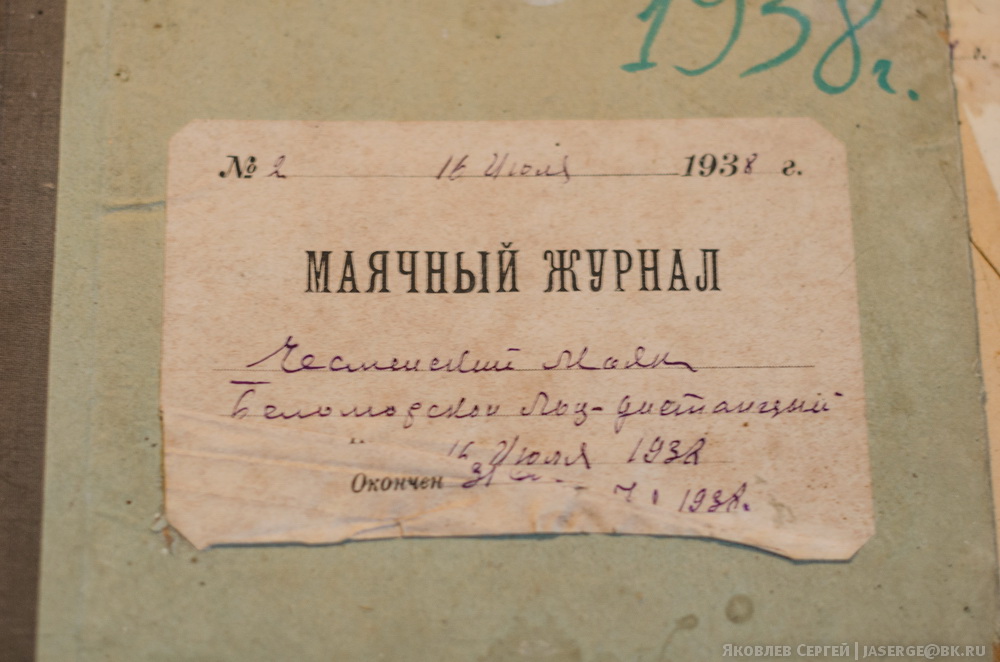 1938г.
№ 2 16 Июля 1938 г.
МАЯЧНЫЙ ЖУРНАЛ
Чесменский Маяк
Беломорской Лоц-дистанций
16 Июля 1938
Окончен 31
1938.
Яковлев Сергей | jaserge@bk.ru